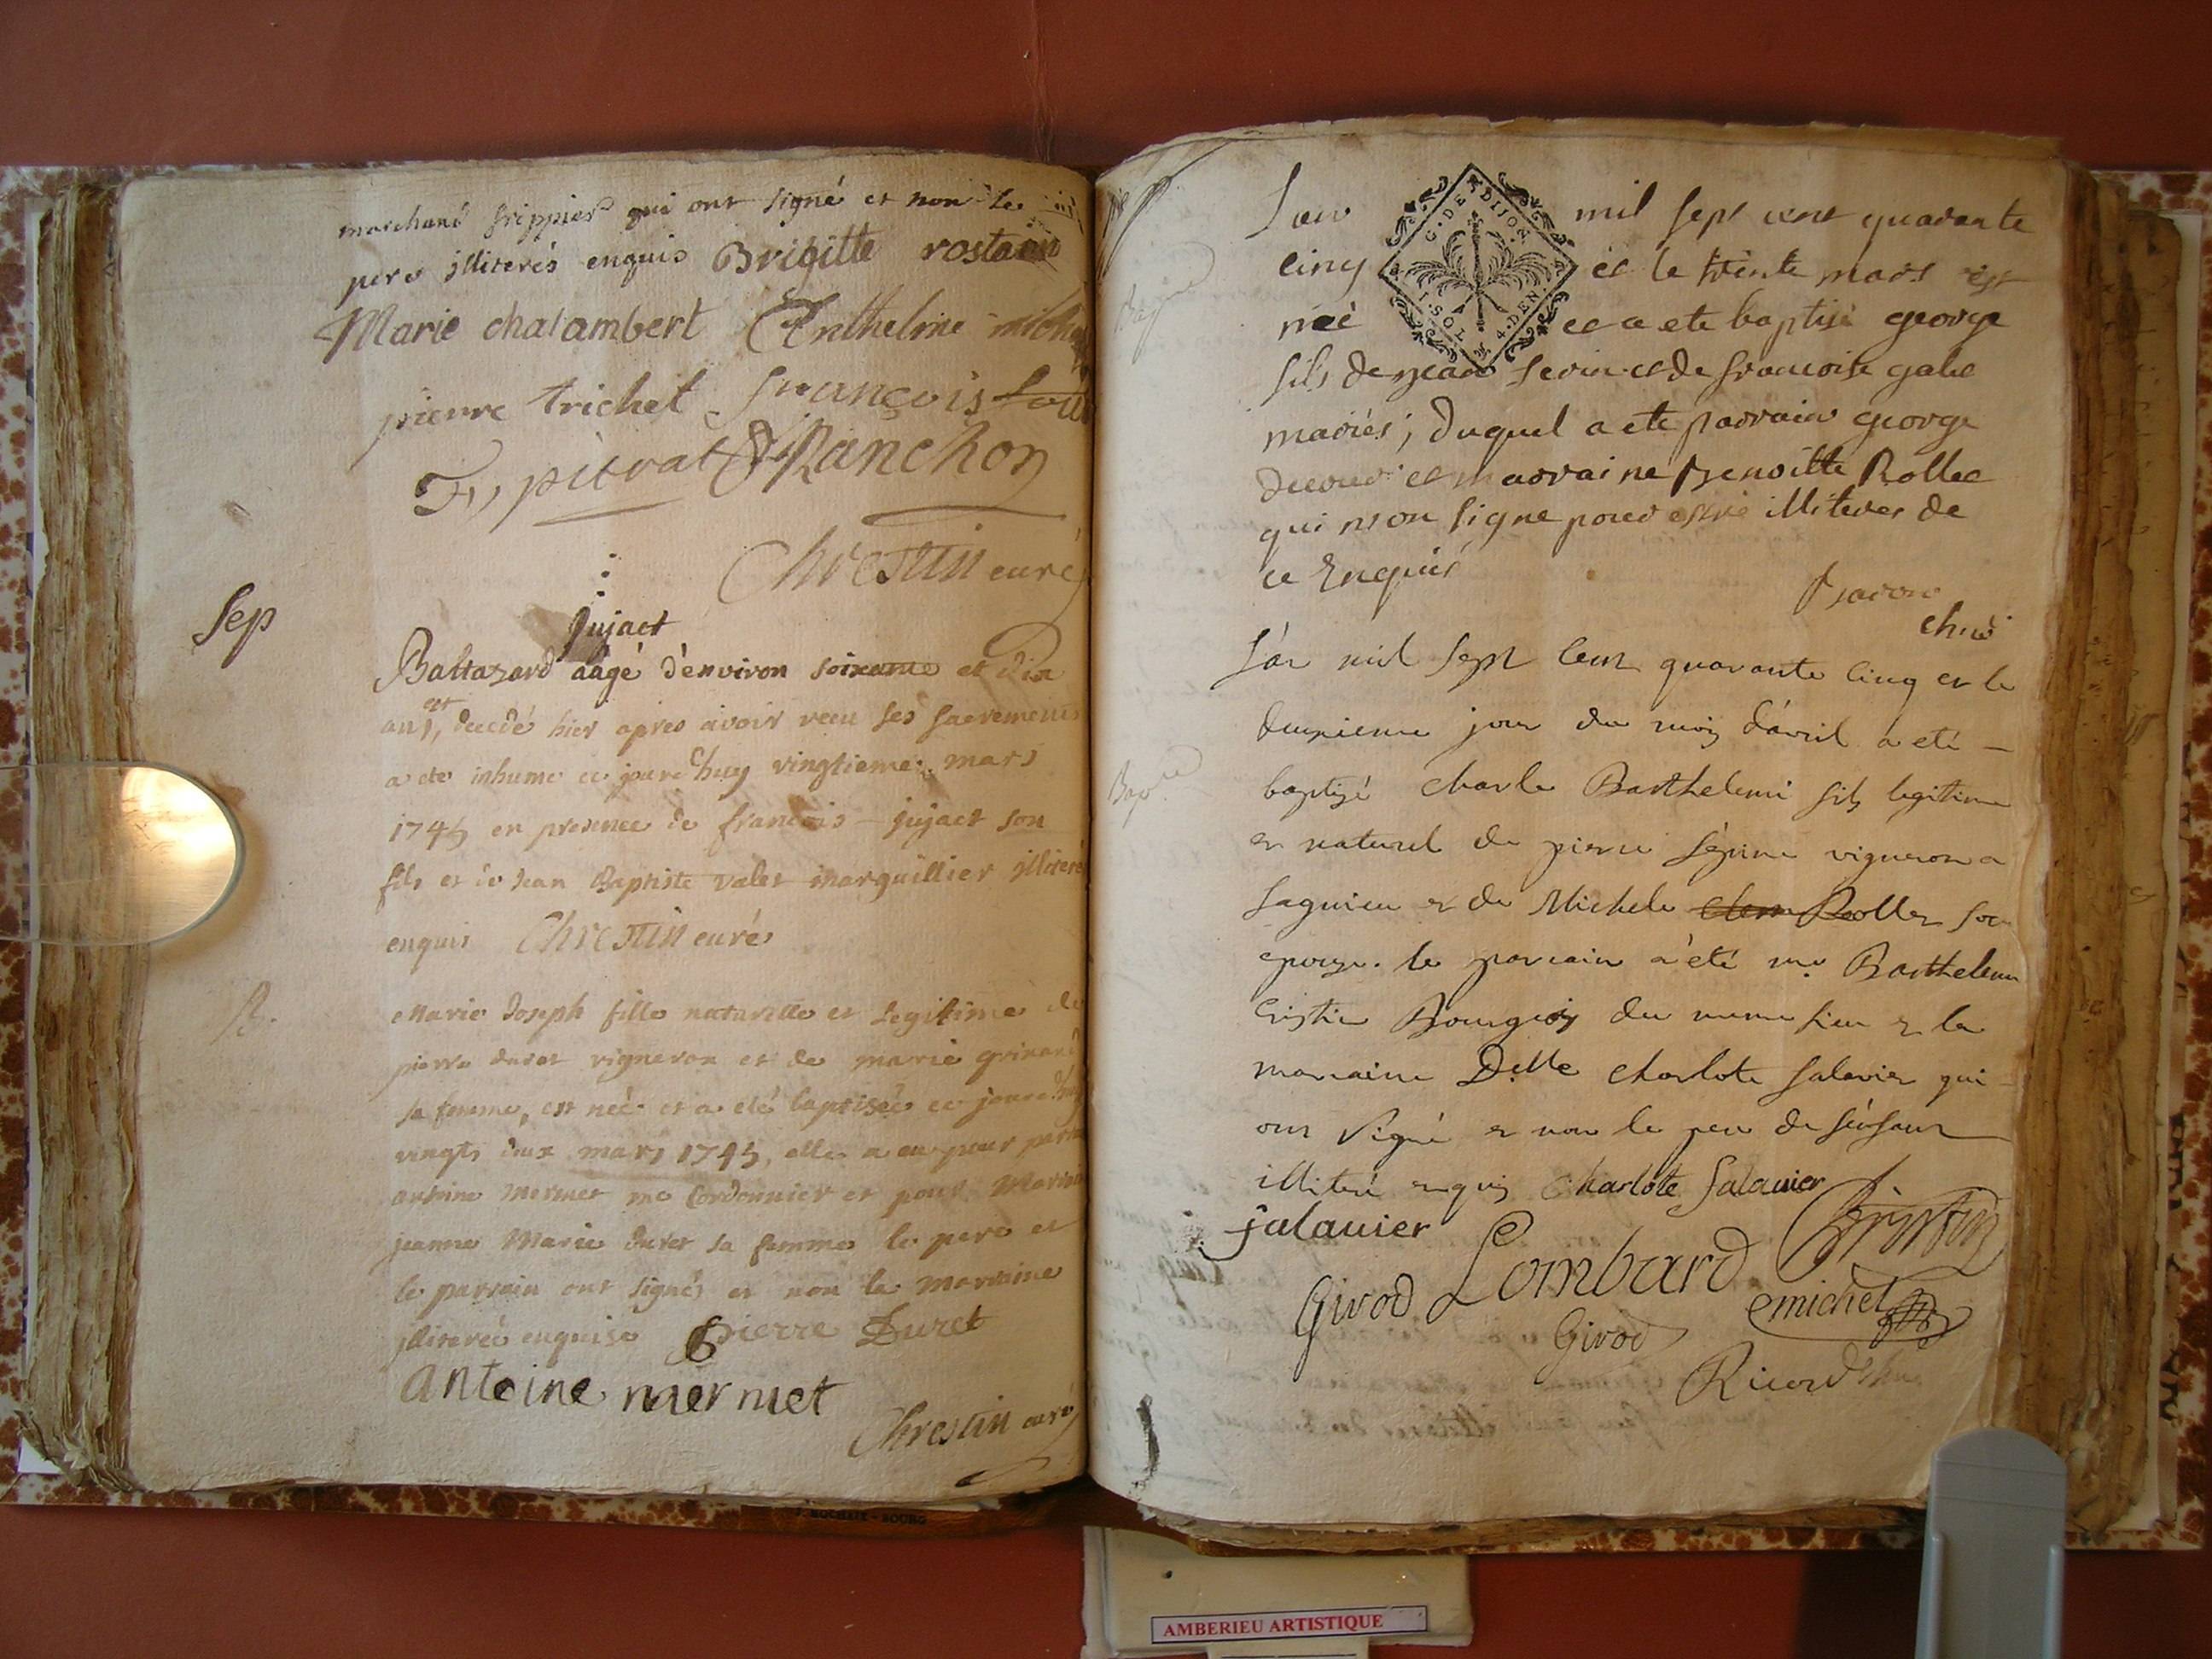 marchand frippier qui ont signé et non le
pere illiterés enquis Brigitte rostain
Marie chalambert Enthelme
pierre trichet françois
pitrat Ranchon
Chrestin curé
Sep
jujact
Baltazard aâgé d'environ soixante et dix
ans, est decedé hier apres avoir receu ses sacrements
a ete inhumé ce jourd'huy vingtieme mars
1745 en presence de francois jujact son
fils et de Jean Baptiste valet marguillier illiteré
enquis Chrestin curé
B.
Marie Joseph fille naturelle et legitime de
pierre duret vigneron et de marie
sa femme, est née et a eté baptisée ce jourd'huy
vingts deux mars 1745, elle a eu pour
antoine mermet me Cordonnier et pour
jeanne Marie duret sa femme le pere et
le parrain ont signés et non la marraine
illiterée enquise pierre Duret
antoine mermet
Chrestin curé
L'an mil sept cent quarante
cinq et le trente mars est
G. DE DIJON
I. SOL 4. DEN.
né et a ete baptisé george
fils de jean et de francoise
mariés; duquel a ete parrain george
et marraine Benoitte Rollet
qui n'on signe pour estre illiteres de
ce Enquis
Bap
L'an mil sept cent quarante cinq et le
deuxieme jour du mois d'avril a eté
baptizé Charle Barthelemi fils legitime
et naturel de pierre vigneron a
Lagnieu et de Michele Rollet son
epouze. le parrain a eté Barthelemi
Cristin Bourgois du meme lieu et la
marraine Delle charlote salavier qui
ont signé et non le pere de l'enfant
illiteré enquis Charlote Salavier
jalavier
Girod Lombard
michel
Girod
Ricord
AMBERIEU ARTISTIQUE